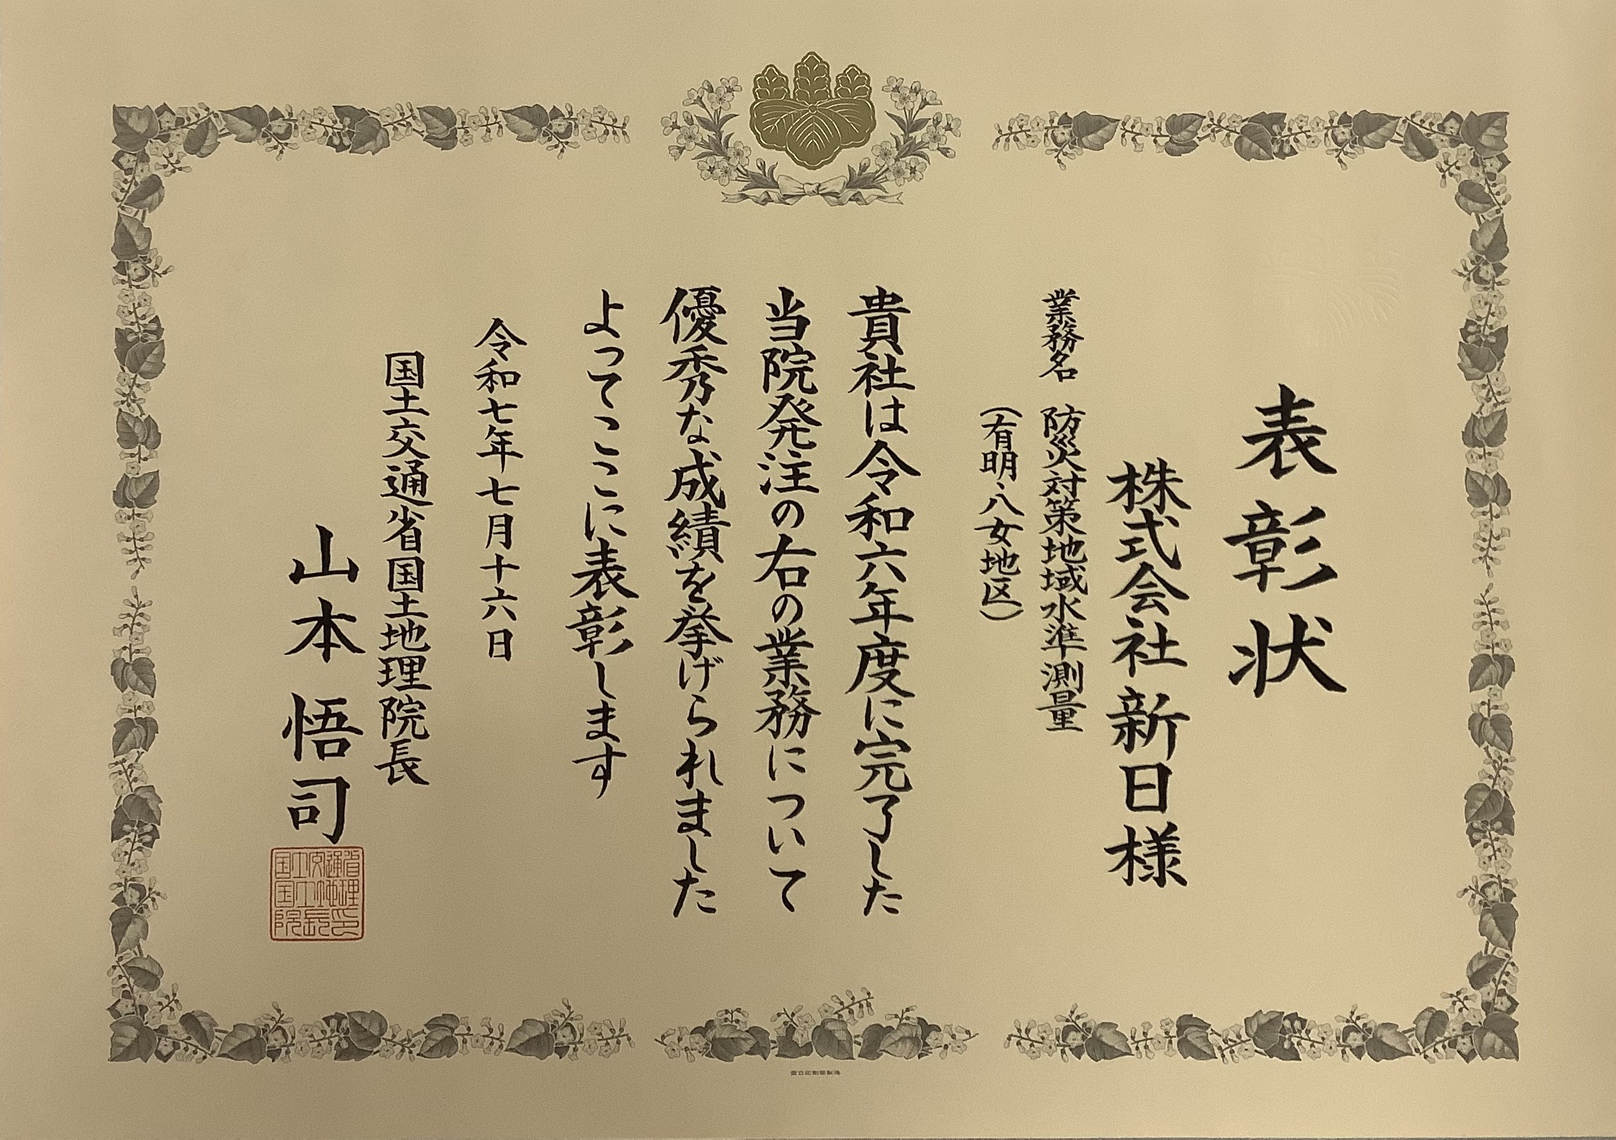 表彰状
株式会社 新日 様
業務名 防災対策地域水準測量
(有明・八女地区)
貴社は令和六年度に完了した
当院発注の右の業務について
優秀な成績を挙げられました
よってここに表彰します
令和七年七月十六日
国土交通省国土地理院長
山本 悟司